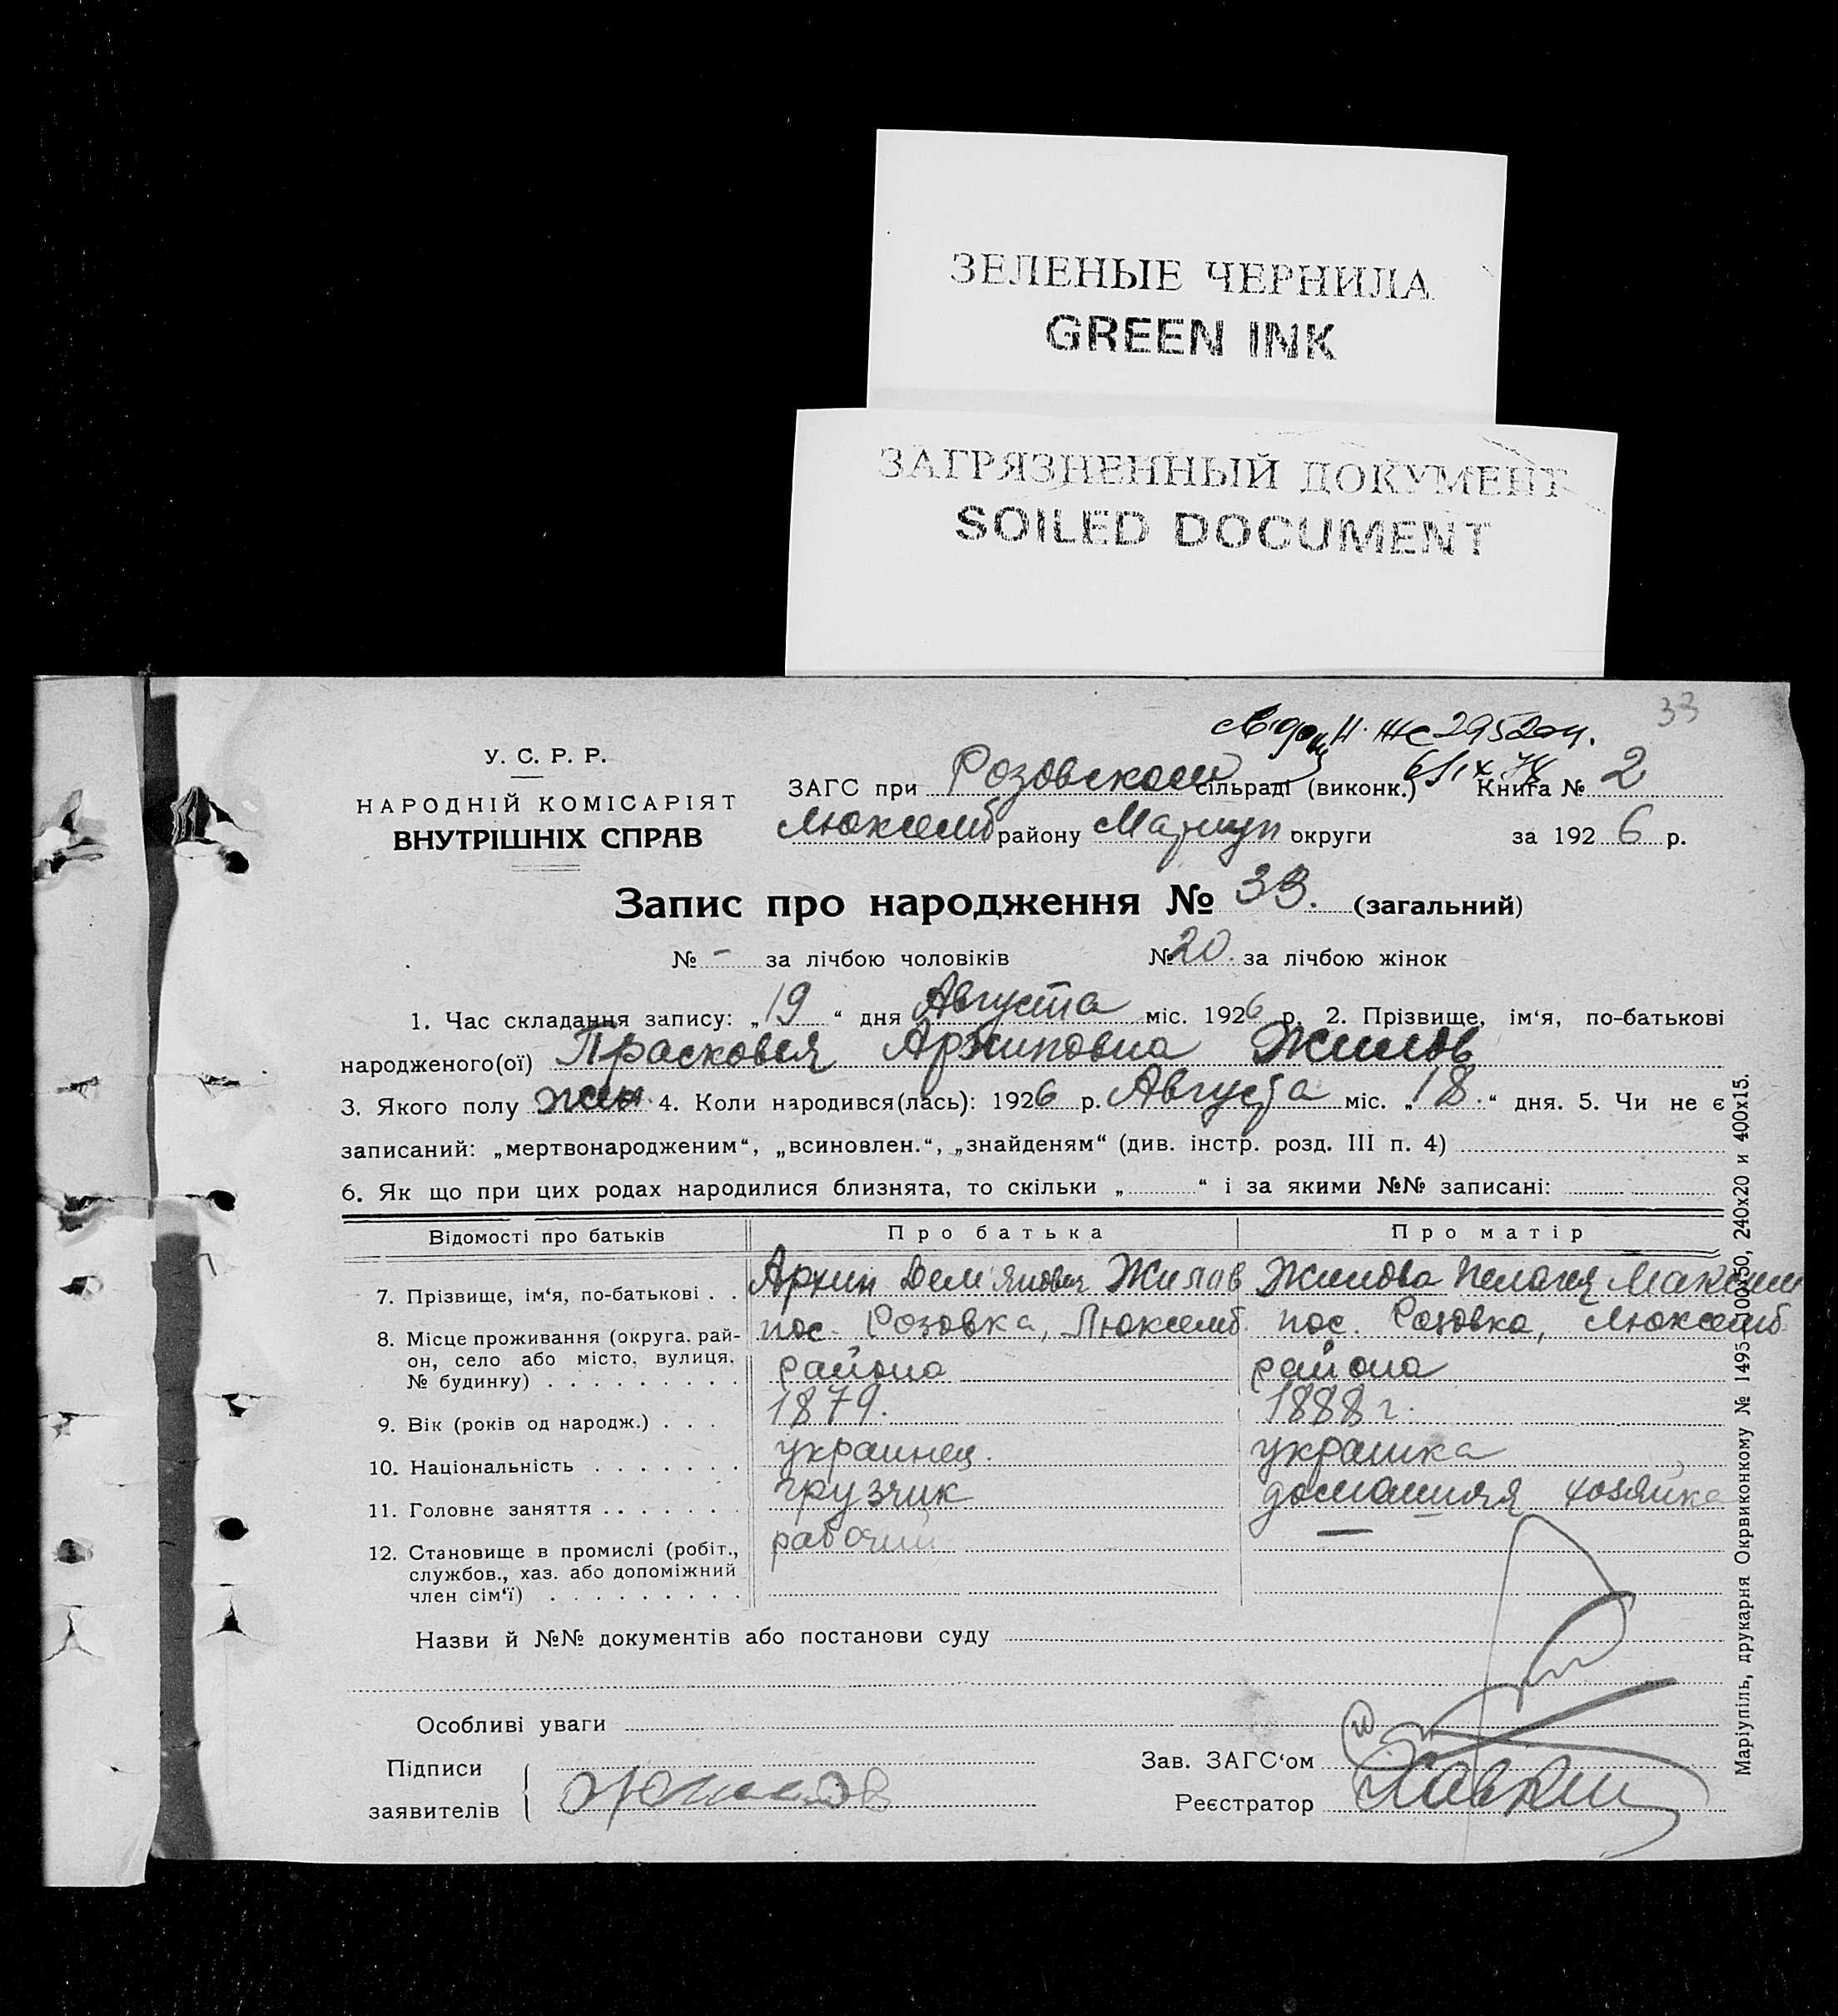 ЗЕЛЕНЫЕ ЧЕРНИЛА
GREEN INK
ЗАГРЯЗНЕННЫЙ ДОКУМЕНТ
SOILED DOCUMENT
33
У. С. Р. Р.
НАРОДНІЙ КОМІСАРІЯТ
ВНУТРІШНІХ СПРАВ
ЗАГС при Розовском сільраді (виконк.) Книга № 2
Люксемб району Мариуп округи за 1926 р.
Запис про народження № 33. (загальний)
№ - за лічбою чоловіків № 20. за лічбою жінок
1. Час складання запису: „19“ дня Августа міс. 1926 р. 2. Прізвище, ім‘я, по-батькові
народженого(ої) Прасковея Архиповна Жилов
3. Якого полу жен. 4. Коли народився(лась): 1926 р. Августа міс. „18.“ дня. 5. Чи не є
записаний: „мертвонародженим“, „всиновлен.“, „знайденям“ (див. інстр. розд. III п. 4)
6. Як що при цих родах народилися близнята, то скільки „ “ і за якими №№ записані:
Відомості про батьків Про батька Про матір
7. Прізвище, ім‘я, по-батькові . . Архип Демʼянович Жилов Жилова Пелагея Максим
8. Місце проживання (округа, рай- пос. Розовка, Люксемб. пос. Розовка, Люксемб
он, село або місто, вулиця, района района
№ будинку) . . . . . . . . .
9. Вік (років од народж.) . . . 1879. 1888 г.
10. Національність . . . . . . . украинец. украинка
11. Головне заняття . . . . . . грузчик домашняя хозяйка
12. Становище в промислі (робіт., рабочий —
службов., хаз. або допоміжний
член сім‘ї) . . . . . . . . .
Назви й №№ документів або постанови суду
Особливі уваги
Підписи
заявителів Жилов
Зав. ЗАГС‘ом
Реєстратор
Маріупіль, друкарня Окрвиконкому № 1495—100х50, 240х20 и 400х15.